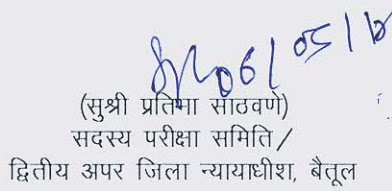 06/05/18
(सुश्री प्रतिभा साठवणे)
सदस्य परीक्षा समिति/
द्वितीय अपर जिला न्यायाधीश, बैतूल